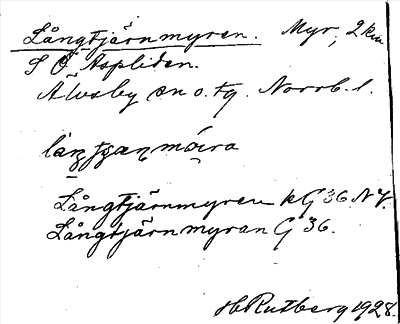 Långtjärnmyren. Myr, 2 km
S Ö Aspliden.
Älvsby sn o. tg. Norrb. l.
Långtjärnmyren kG 36 N4.
Långtjärnmyran G 36.
H Rutberg 1928.